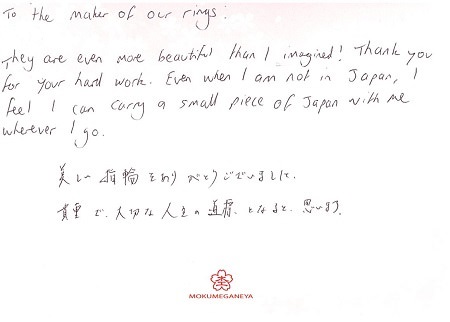 To the maker of our rings:
They are even more beautiful than I imagined! Thank you
for your hard work. Even when I am not in Japan, I
feel I can carry a small piece of Japan with me
wherever I go.
美しい指輪をありがとうございました。
貴重で、大切な人生の道標となると、思います。
MOKUMEGANEYA